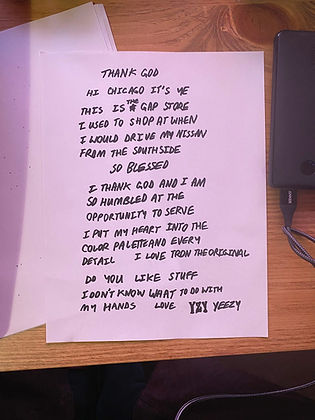 THANK GOD
HI CHICAGO IT'S YE
THIS IS THE GAP STORE
I USED TO SHOP AT WHEN
I WOULD DRIVE MY NISSAN
FROM THE SOUTHSIDE
SO BLESSED
I THANK GOD AND I AM
SO HUMBLED AT THE
OPPORTUNITY TO SERVE
I PUT MY HEART INTO THE
COLOR PALETTE AND EVERY
DETAIL I LOVE TRON THE ORIGINAL
DO YOU LIKE STUFF
I DON'T KNOW WHAT TO DO WITH
MY HANDS LOVE YZY YEEZY